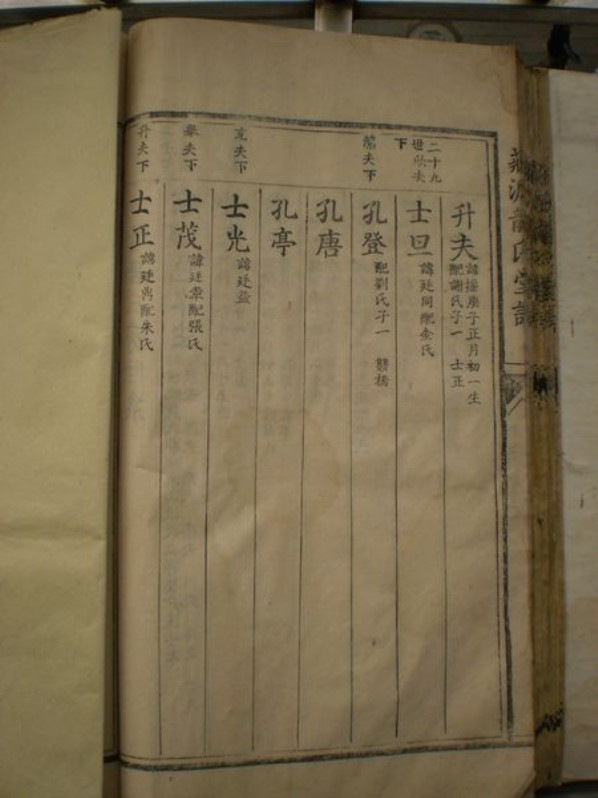 升夫
庚子正月初一生
配謝氏子一 士正
二十九
世
夫
下
士旦
諱廷同配余氏
夫下
孔登
配劉氏子一
孔唐
孔亭
夫下
士光
諱廷益
夫下
士茂
諱廷章配張氏
升夫下
士正
諱廷禹配朱氏